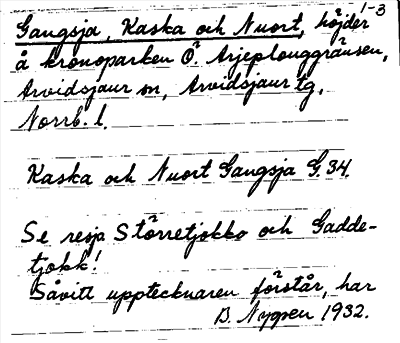 1-3
Gaugsja, Kaska och Nuort, höjder
å kronoparken Ö. Arjeplouggränsen,
Arvidsjaur sn, Arvidsjaur tg,
Norrb. l.
Kaska och Nuort Gaugsja G. 34.
Se resja Stôrretjokko och Gadde-
tjokk!
Såvitt upptecknaren förstår, har
B. Nygren 1932.